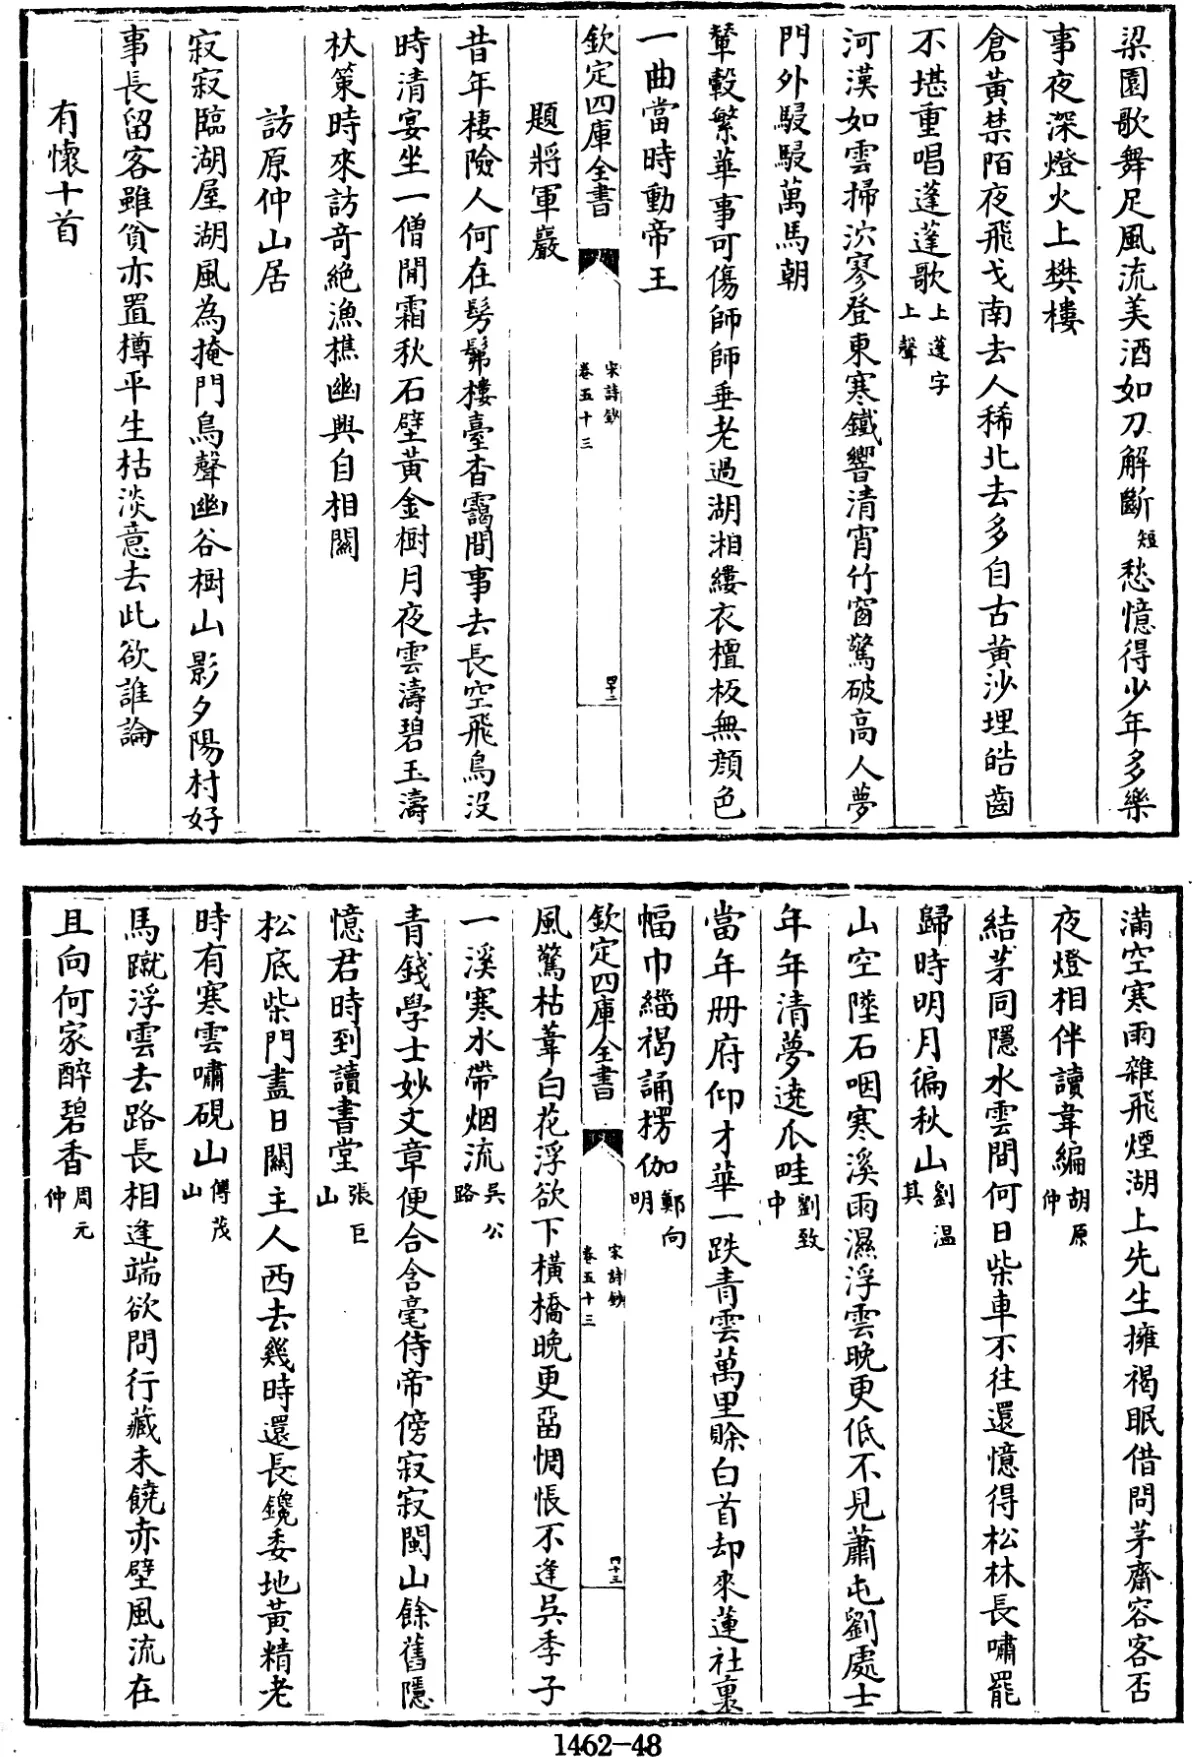 梁園歌舞足風流美酒如刀解斷短愁憶得少年多樂
事夜深燈火上樊樓
倉黃禁陌夜飛戈南去人稀北去多自古黃沙埋皓齒
不堪重唱蓬蓬歌上蓬字上聲
河漢如雲掃泬寥登東寒鐵響清宵竹窗驚破高人夢
門外駸駸萬馬朝
輦轂繁華事可傷師師垂老過湖湘縷衣檀板無顏色
一曲當時動帝王
欽定四庫全書
宋詩鈔
卷五十三
四十二
題將軍巖
昔年棲險人何在髣髴樓臺杳靄間事去長空飛鳥沒
時清宴坐一僧閒霜秋石壁黃金樹月夜雲濤碧玉濤
杖策時來訪奇絶漁樵幽興自相關
訪原仲山居
寂寂臨湖屋湖風為掩門鳥聲幽谷樹山影夕陽村好
事長留客雖貧亦置樽平生枯淡意去此欲誰論
有懷十首
滿空寒雨雜飛煙湖上先生擁褐眠借問茅齋容客否
夜燈相伴讀韋編胡原仲
結茅同隱水雲間何日柴車不往還憶得松林長嘯罷
歸時明月徧秋山劉溫其
山空墜石咽寒溪雨濕浮雲晚更低不見蕭屯劉處士
年年清夢遶瓜畦劉致中
當年册府仰才華一跌青雲萬里賒白首却來蓮社裏
幅巾緇褐誦楞伽鄭向明
欽定四庫全書
宋詩鈔
卷五十三
四十三
風驚枯葦白花浮欲下橫橋晚更畱惆悵不逢吳季子
一溪寒水帶烟流吳公路
青錢學士妙文章便合含毫侍帝傍寂寂閩山餘舊隱
憶君時到讀書堂張巨山
松底柴門盡日關主人西去幾時還長鑱委地黃精老
時有寒雲嘯硯山傅茂山
馬蹴浮雲去路長相逢端欲問行藏未饒赤壁風流在
且向何家醉碧香周元仲
1462—48